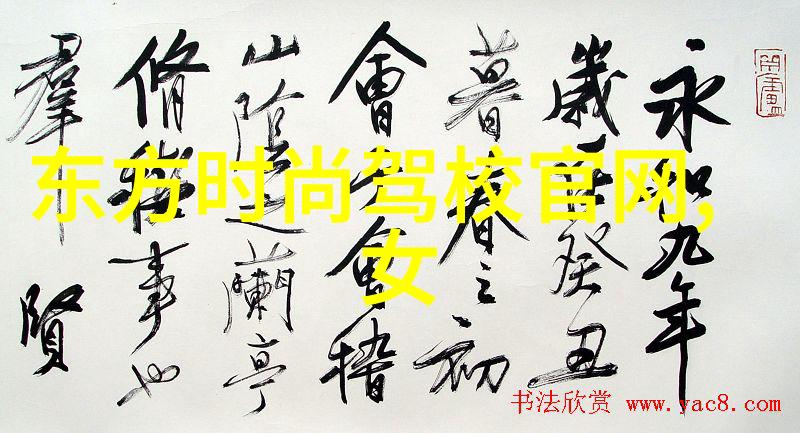 永和九年
歲在癸丑
暮春之初
會于會稽
山陰之蘭亭
脩禊事也
羣賢
东方时尚驾校官网,
女
书法欣赏 www.yac8.com